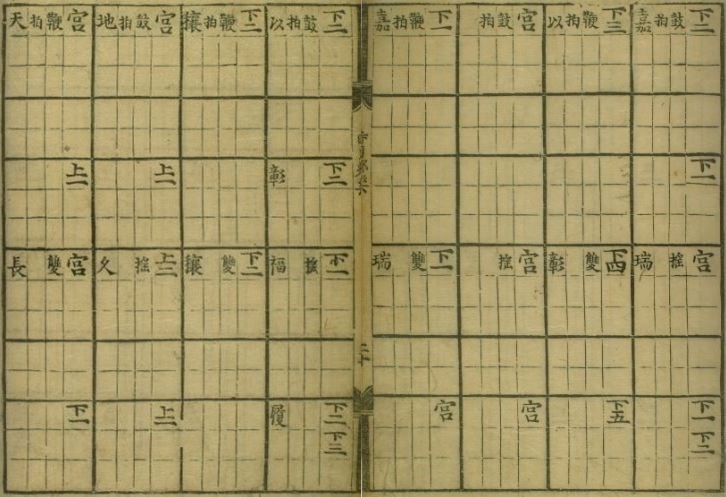 下二鼓拍嘉
下一
宮搖瑞
下一
下二
下三鞭拍以
下四雙彰
下五
宮鼓拍
宮搖
宮
下一鞭拍嘉
下一雙瑞
宮
下二鼓拍以
下二彰
下一搖福
下二履
下三
下二鞭拍穰
下二雙穰
宮鼓拍地
上一
上二搖久
上一
宮鞭拍天
上一
宮雙長
下一